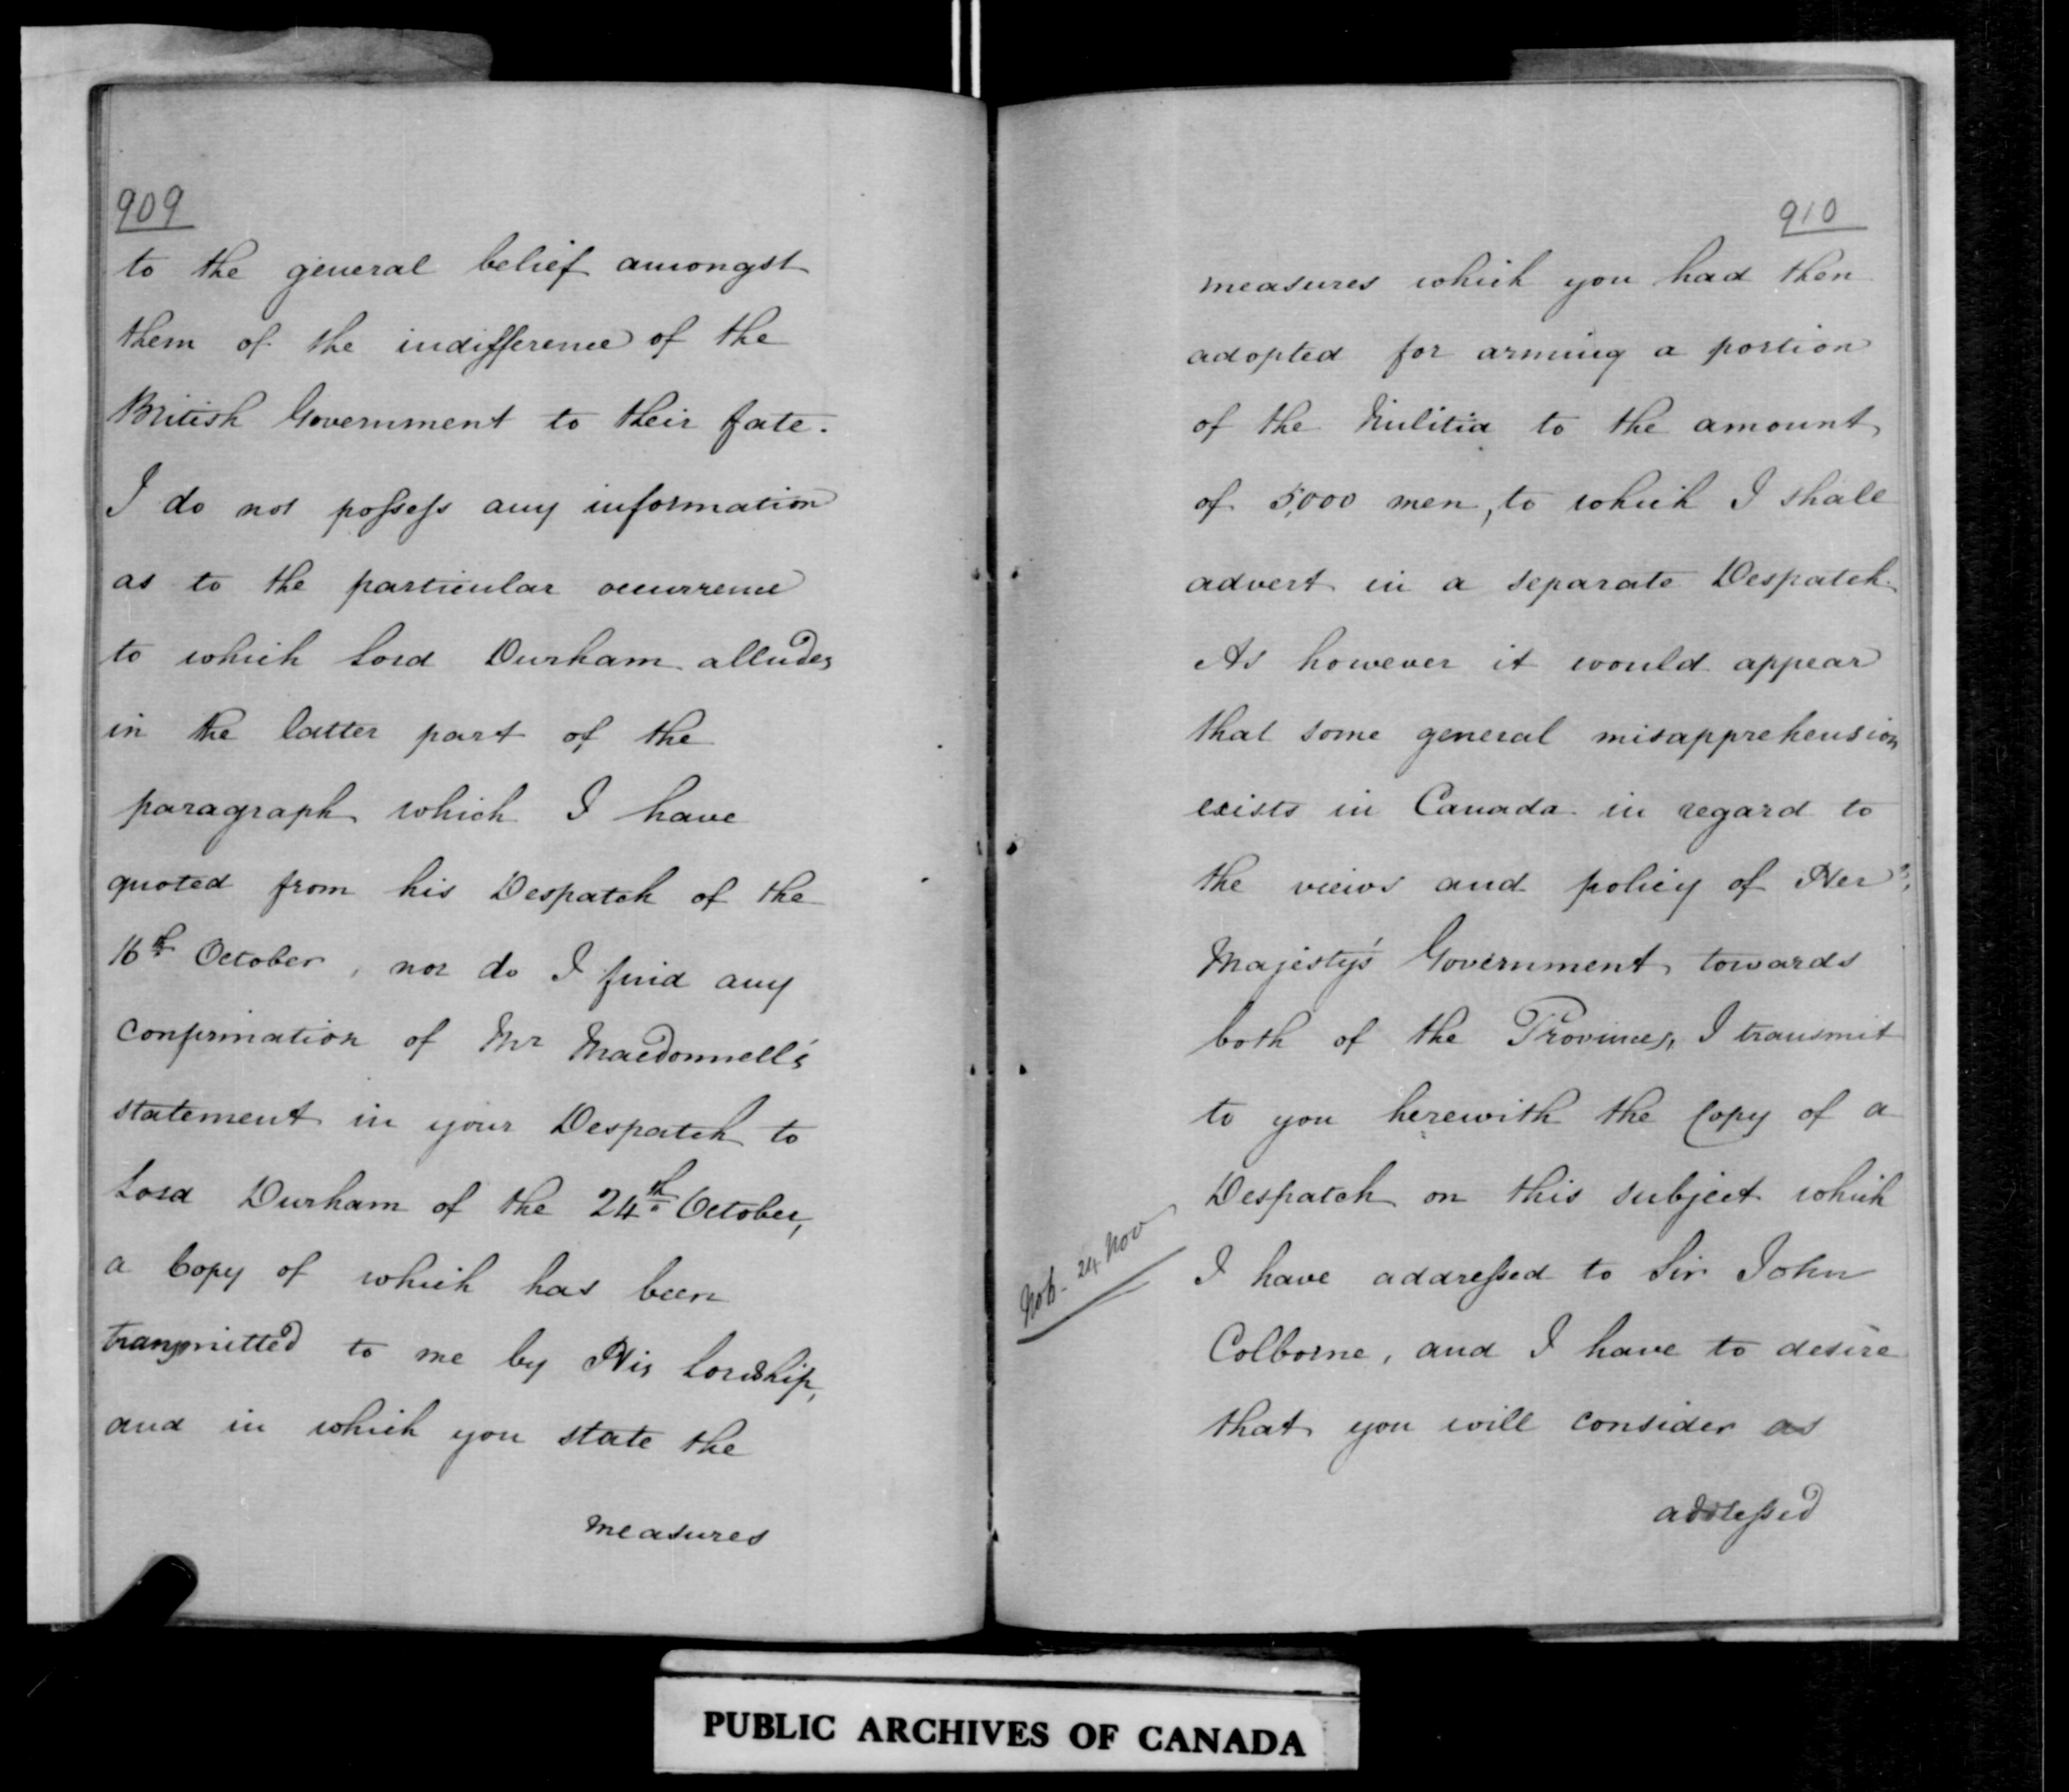 909
to the general belief amongst
them of the indifference of the
British Government to their fate.
I do not possess any information
as to the particular occurrence
to which Lord Durham alludes
in the latter part of the
paragraph which I have
quoted from his Despatch of the
16th October, nor do I find any
confirmation of Mr Macdonnell's
statement in your Despatch to
Lord Durham of the 24th October,
a Copy of which has been
transmitted to me by His Lordship,
and in which you state the
measures
910
measures which you had then
adopted for arming a portion
of the Militia to the amount
of 5,000 men, to which I shall
advert in a separate Despatch.
As however it would appear
that some general misapprehension
exists in Canada in regard to
the views and policy of Her
Majesty's Government towards
both of the Provinces, I transmit
to you herewith the Copy of a
Despatch on this subject which
24 Nov
I have addressed to Sir John
Colborne, and I have to desire
that you will consider as
addressed
PUBLIC ARCHIVES OF CANADA